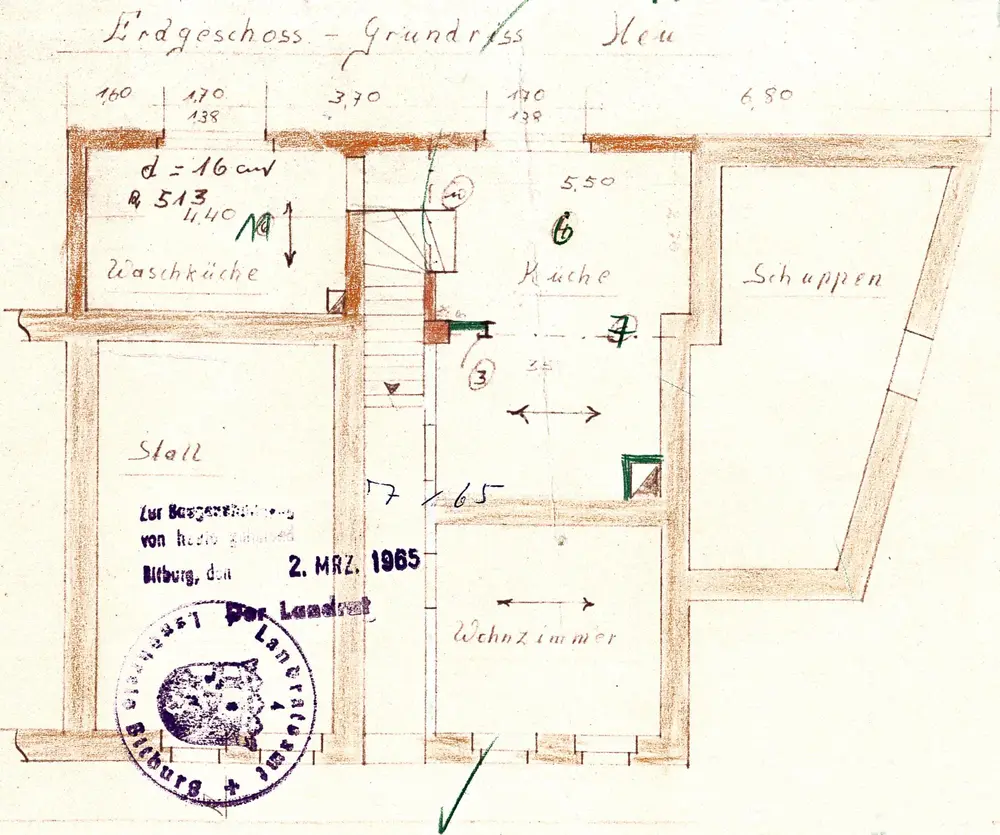 Erdgeschoss – Grundriss Neu
1,60 1,70 3,70 1,70 6,80
138 138
d = 16 cm
R 513
4,40
11
Waschküche
5,50
6
Küche
7
Schuppen
3
35
Stall
57 / 65
Zur Baugenehmigung
von heute gehörend
Bitburg, den 2. MRZ. 1965
Der Landrat
Wohnzimmer
Landratsamt
Bitburg